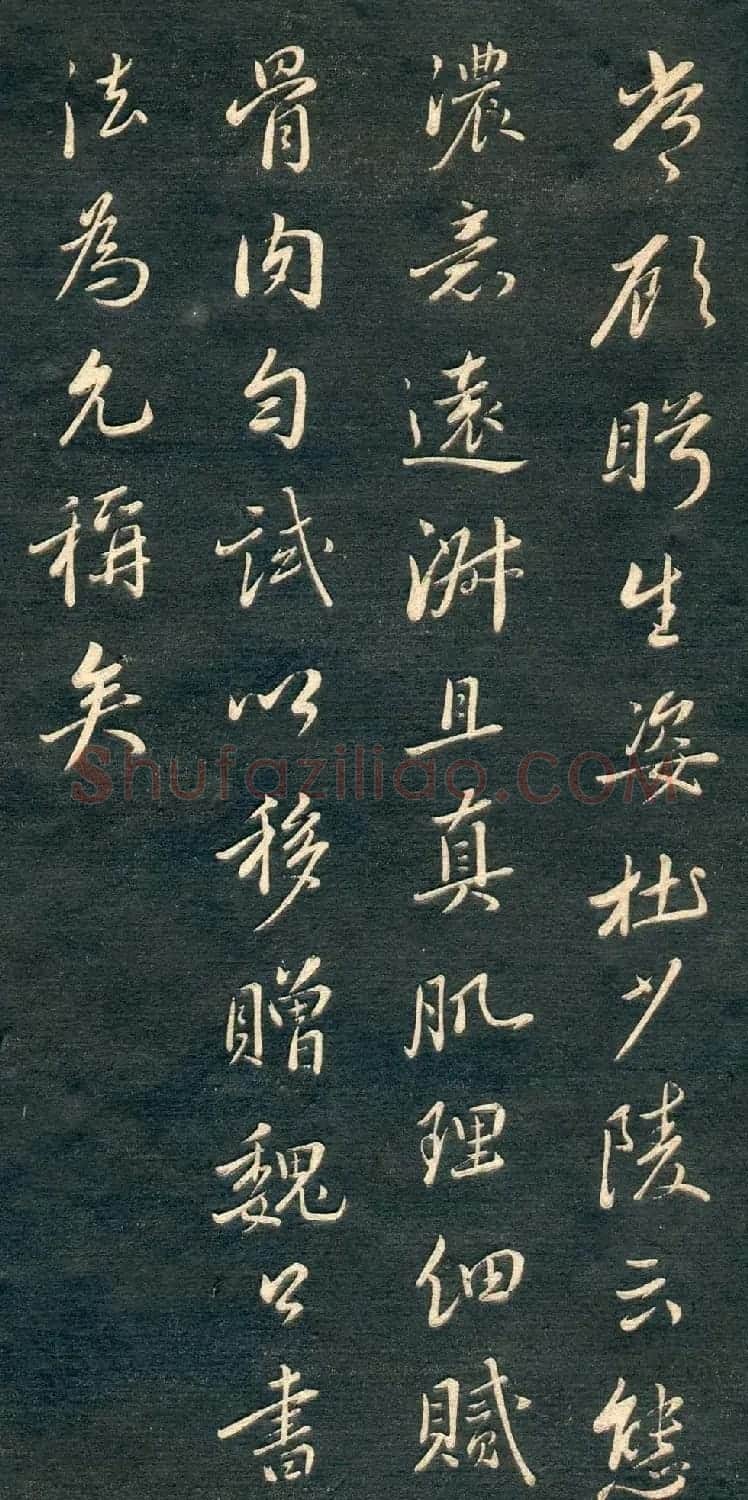 常顧眄生姿杜少陵云態
濃意遠淑且真肌理細膩
骨肉勻試以移贈魏公書
法為允稱矣
Shufaziliao.COM